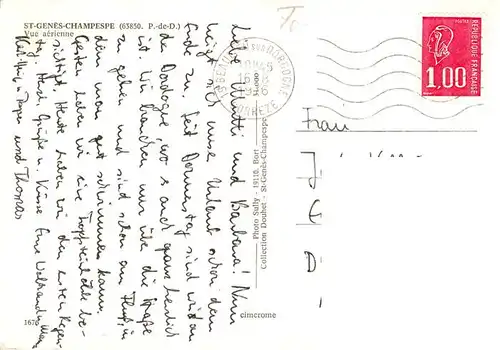 ST-GENÈS-CHAMPESPE (63850. P.-de-D.)
Vue aérienne
Liebe Mutti und Barbara! Nun
neigt sich unser Urlaub schon dem
Ende zu. Seit Donnerstag sind wir an
der Dordogne, wo es auch ganz herrlich
ist. Wir brauchen nur über die Straße
zu gehen und sind schon am Fluß, in
dem man gut schwimmen kann.
Gestern haben wir eine Tropfsteinhöhle be-
sichtigt. Heute haben wir den ersten Regen-
tag. Herzl. Grüße u. Küsse Eure
und Thomas
1676
Photo Sully - 19110. Bort
Collection Doubet - St-Genès-Champespe
cimcrome
SUR DORDOGNE
CORREZE
POSTES
REPUBLIQUE FRANÇAISE
1,00
Frau